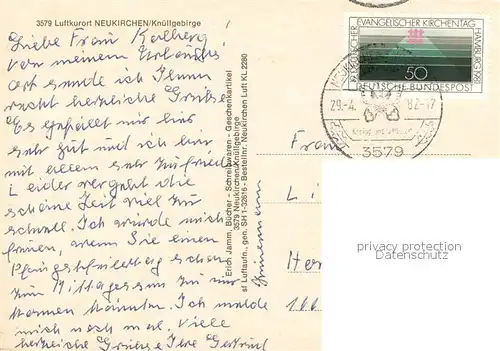 3579 Luftkurort NEUKIRCHEN/Knüllgebirge
Liebe Frau Kalberg!
von meinem Urlaubs
ort sende ich Ihnen
recht herzliche Grüsse
Es gefällt mir hier
sehr gut und ich bin
mit allem sehr zufrieden
Leider vergeht die
schöne Zeit viel zu
schnell. Ich würde mich
freuen, wenn Sie einen
Pfingstfeiertag schon
zum Mittagessen zu mir
kommen könnten. Ich melde
mich noch mal. Viele
herzliche Grüsse Ihre Gertrud
Erich Jamm, Bücher - Schreibwaren - Geschenkartikel
3579 Neukirchen/Knüllgebirge
sf Luftaufn., gen. SH 1-32616 - Bestellnr. Neukirchen Luft KL 2280
19. DEUTSCHER EVANGELISCHER KIRCHENTAG HAMBURG 1981
50
DEUTSCHE BUNDESPOST
29.-4. 82-17
3579
Frau
Li
Her
1.00
privacy protected
Datenschutz